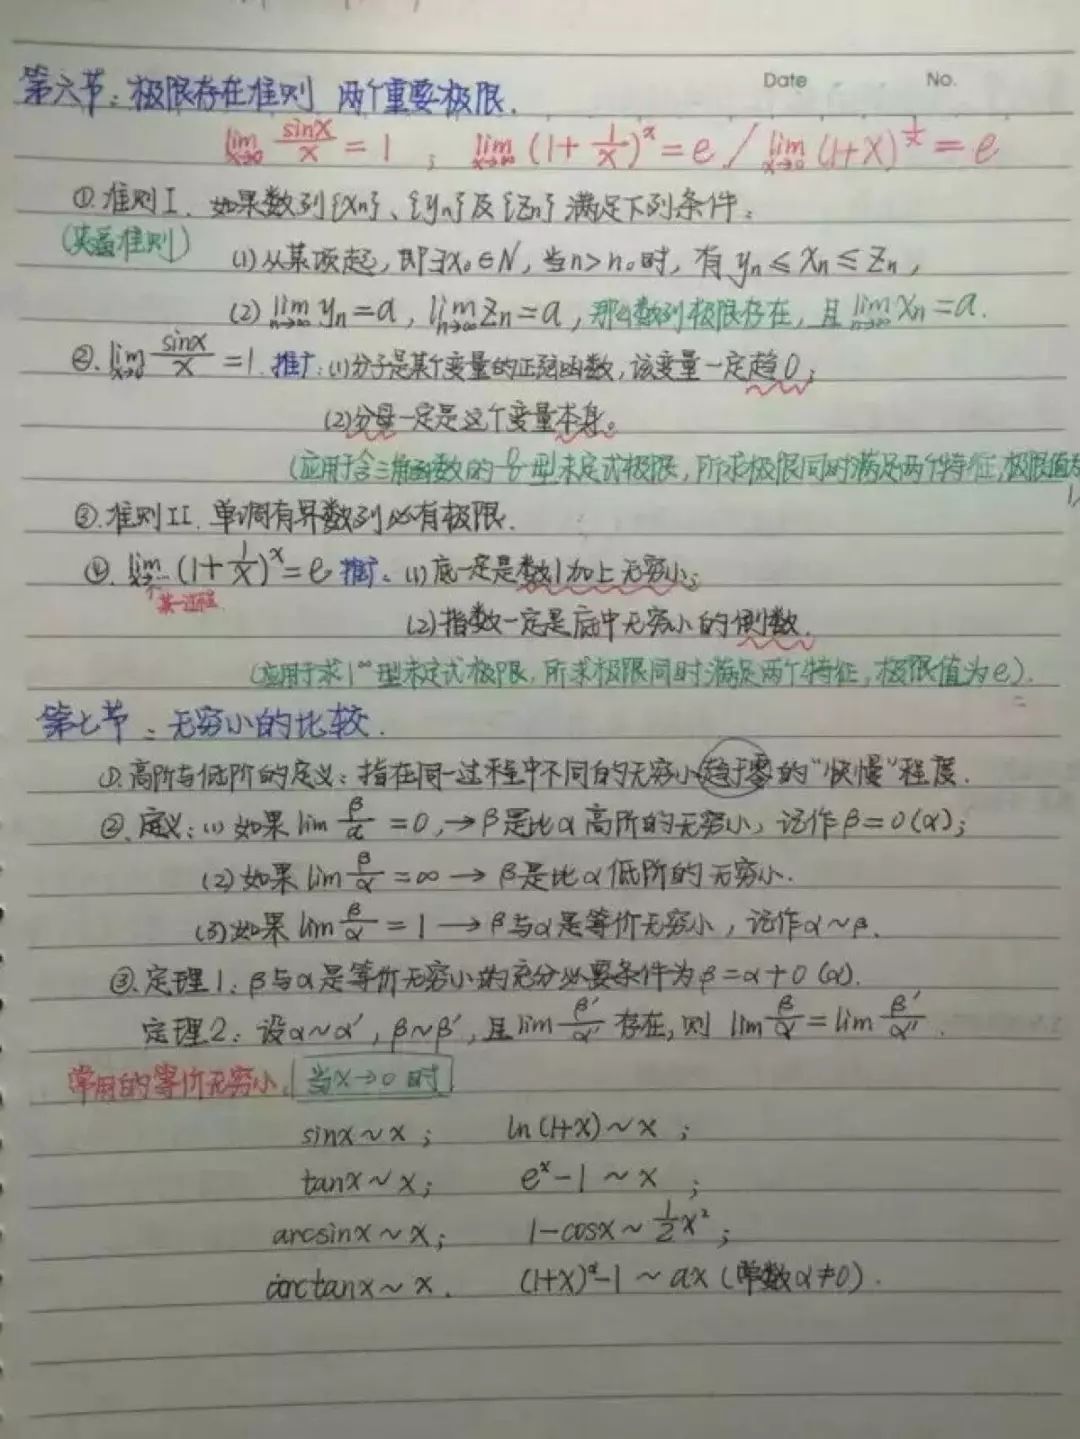 Date No.
第六节：极限存在准则 两个重要极限.
lim x→0 sinx/x = 1 ; lim x→∞ (1+1/x)^x = e / lim x→0 (1+x)^(1/x) = e
①.准则I. 如果数列{xn}、{yn}及{zn}满足下列条件：
(夹逼准则)
(1)从某项起，即∃x₀∈N，当n>n₀时，有 yn≤xn≤zn，
(2) lim n→∞ yn=a，lim n→∞ zn=a，那么数列极限存在，且 lim n→∞ xn=a.
②. lim x→0 sinx/x =1. 推广：(1)分子是某个变量的正弦函数，该变量一定趋0；
(2)分母一定是这个变量本身。
(应用于含三角函数的0/0型未定式极限，所求极限同时满足两个特征，极限值为
1)
③.准则II. 单调有界数列必有极限.
④. lim (1+1/x)^x=e 推广：(1)底一定是数1加上无穷小；
某一过程
(2)指数一定是底中无穷小的倒数.
(应用于求1^∞型未定式极限，所求极限同时满足两个特征，极限值为e).
第七节：无穷小的比较.
①.高阶与低阶的定义：指在同一过程中不同的无穷小趋于零的“快慢”程度.
②.定义：(1)如果lim β/α =0，→β是比α高阶的无穷小，记作β=0(α)；
(2)如果lim β/α =∞ → β是比α低阶的无穷小.
(3)如果lim β/α = 1 → β与α是等价无穷小，记作α~β.
③.定理1：β与α是等价无穷小的充分必要条件为β=α+0(α).
定理2：设α~α′，β~β′，且lim β′/α′ 存在，则 lim β/α = lim β′/α′.
常用的等价无穷小. 当x→0时
sinx~x； ln(1+x)~x ；
tanx~x； e^x-1 ~ x ；
arcsinx~x； 1-cosx~ 1/2 x²；
arctanx~x. (1+x)^α-1 ~ αx (常数α≠0).